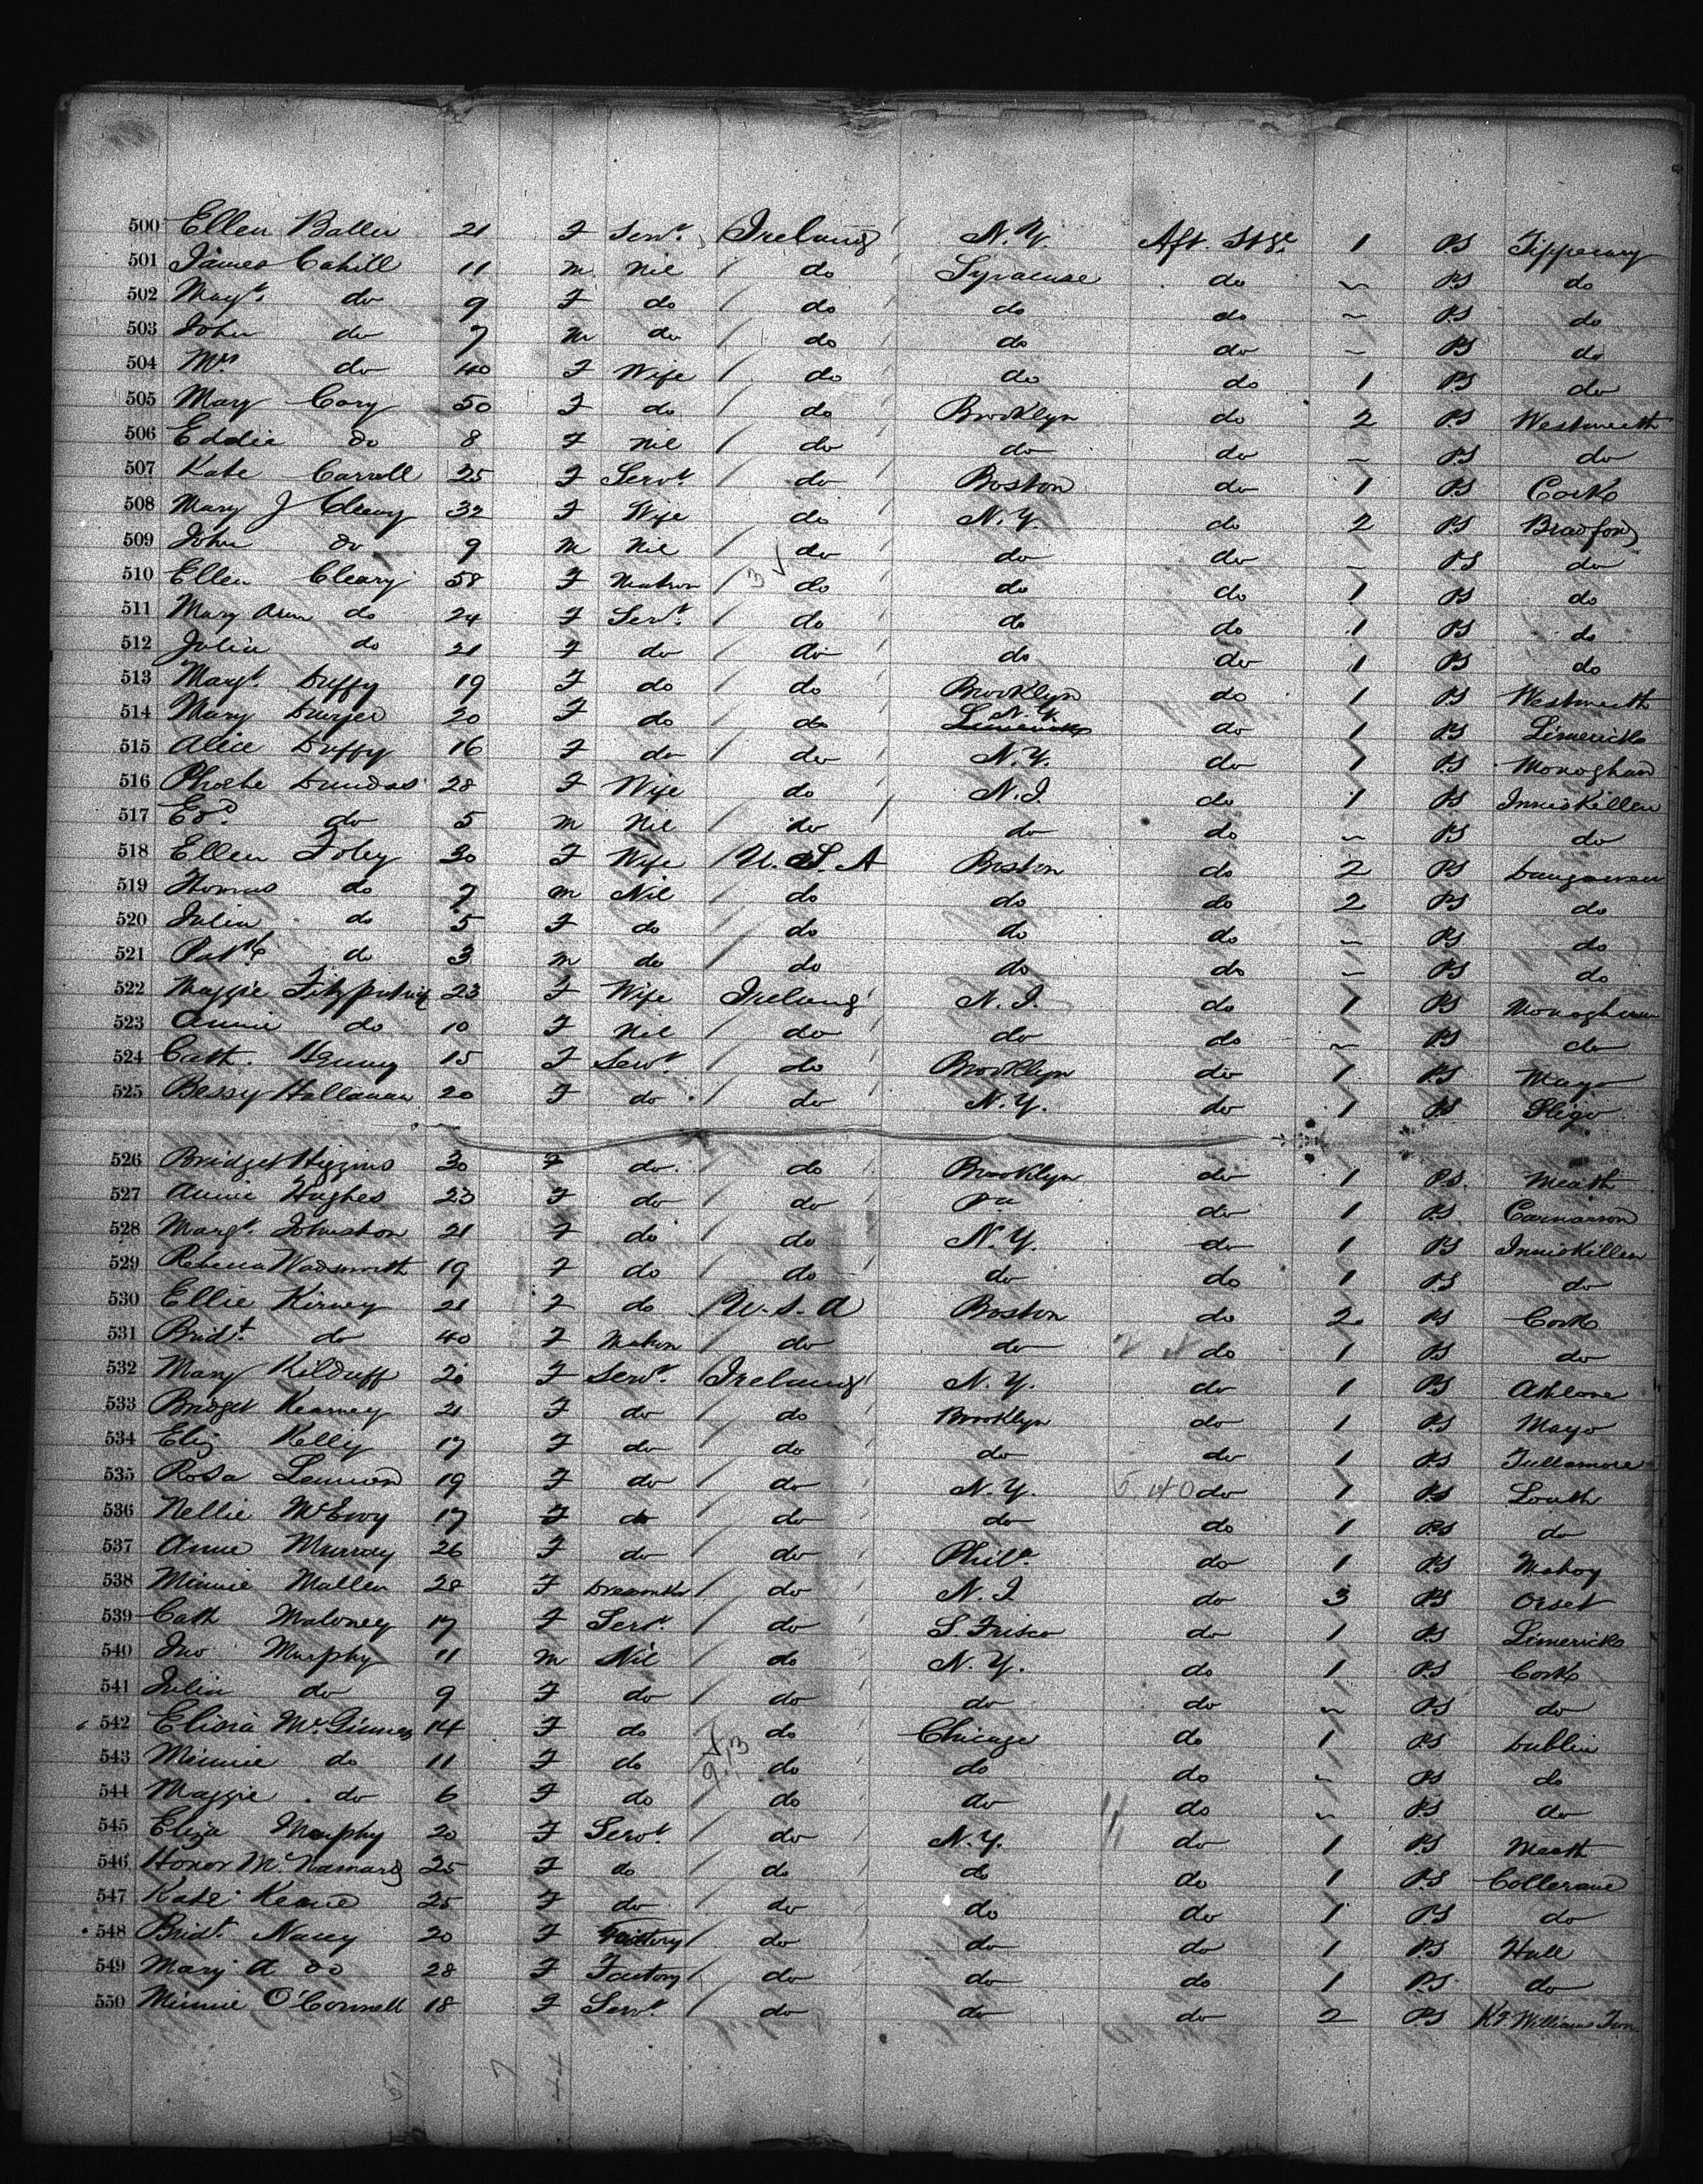 500 Ellen Baller 21 F Servt. Ireland N.Y. Aft. Stge 1 PS Tipperary
501 James Cahill 11 m Nil / do Syracuse do ~ PS do
502 Magt. do 9 F do / do do do ~ PS do
503 John do 7 m do / do do do ~ PS do
504 Mrs do 40 F Wife / do do do 1 PS do
505 Mary Cory 50 F do / do Brooklyn do 2 PS Westmeath
506 Eddie do 8 F Nil / do do do ~ PS do
507 Kate Carroll 25 F Servt. / do Boston do 1 PS Cork
508 Mary J Cleary 32 F Wife / do N.Y. do 2 PS Bradford
509 John do 9 m Nil / do do do ~ PS do
510 Ellen Cleary 58 F Matron / 3 do do do 1 PS do
511 Mary Ann do 24 F Servt. / do do do 1 PS do
512 Julia do 21 F do / do do do 1 PS do
513 Magt. Duffy 19 F do / do Brooklyn do 1 PS Westmeath
514 Mary Dwyer 20 F do / do Limerick N.Y. do 1 PS Limerick
515 Alice Duffy 16 F do / do N.Y. do 1 PS Monoghan
516 Phoebe Dundas 28 F Wife / do N.J. do 1 PS Inniskillen
517 Edd. do 5 m Nil / do do do ~ PS do
518 Ellen Foley 30 F Wife / U.S.A Boston do 2 PS Dungarvan
519 Thomas do 7 m Nil / do do do 2 PS do
520 Julia do 5 F do / do do do ~ PS do
521 Patk do 3 m do / do do do ~ PS do
522 Maggie Fitzpatrick 23 F Wife Ireland N.J. do 1 PS Monaghan
523 Annie do 10 F Nil / do do do ~ PS do
524 Cath. Henry 15 F Servt. / do Brooklyn do 1 PS Mayo
525 Bessy Hallanan 20 F do / do N.Y. do 1 PS Sligo
526 Bridget Higgins 30 F do / do Brooklyn do 1 PS Meath
527 Annie Hughes 23 F do / do Pa do 1 PS Carnarvon
528 Margt. Johnston 21 F do / do N.Y. do 1 PS Inniskillen
529 Rebecca Wadsworth 19 F do / do do do 1 PS do
530 Ellie Kirney 21 F do / U.S.A Boston do 2 PS Cork
531 Bridt. do 40 F Matron / do do do 1 PS do
532 Mary Kilduff 20 F Servt. / Ireland N.Y. do 1 PS Athlone
533 Bridget Kearney 21 F do / do Brooklyn do 1 PS Mayo
534 Eliz Kelly 17 F do / do do do 1 PS Tullamore
535 Rosa Lennon 19 F do / do N.Y. do 1 PS Louth
536 Nellie McEvoy 17 F do / do do do 1 PS do
537 Annie Murray 26 F do / do Phila. do 1 PS
538 Minnie Mullen 28 F Dressmkr / do N.J do 3 PS Orset
539 Cath Maloney 17 F Servt. / do S. Frisco do 1 PS Limerick
540 Jno Murphy 11 m Nil / do N.Y. do 1 PS Cork
541 Julia do 9 F do / do do do ~ PS do
542 Elisia McGinness 14 F do / do Chicago do 1 PS Dublin
543 Minnie do 11 F do do do do ~ PS do
544 Maggie do 6 F do / do do do ~ PS do
545 Eliza Murphy 20 F Servt. / do N.Y. do 1 PS Meath
546 Honor McNamara 25 F do / do do do 1 PS Collerane
547 Kate Keane 25 F do / do do do 1 PS do
548 Bridt. Nacey 20 F Factory / do do do 1 PS Hull
549 Mary A do 28 F Factory / do do do 1 PS do
550 Minnie O'Connell 18 F Servt. / do do do 2 PS Kg Williams Twn.